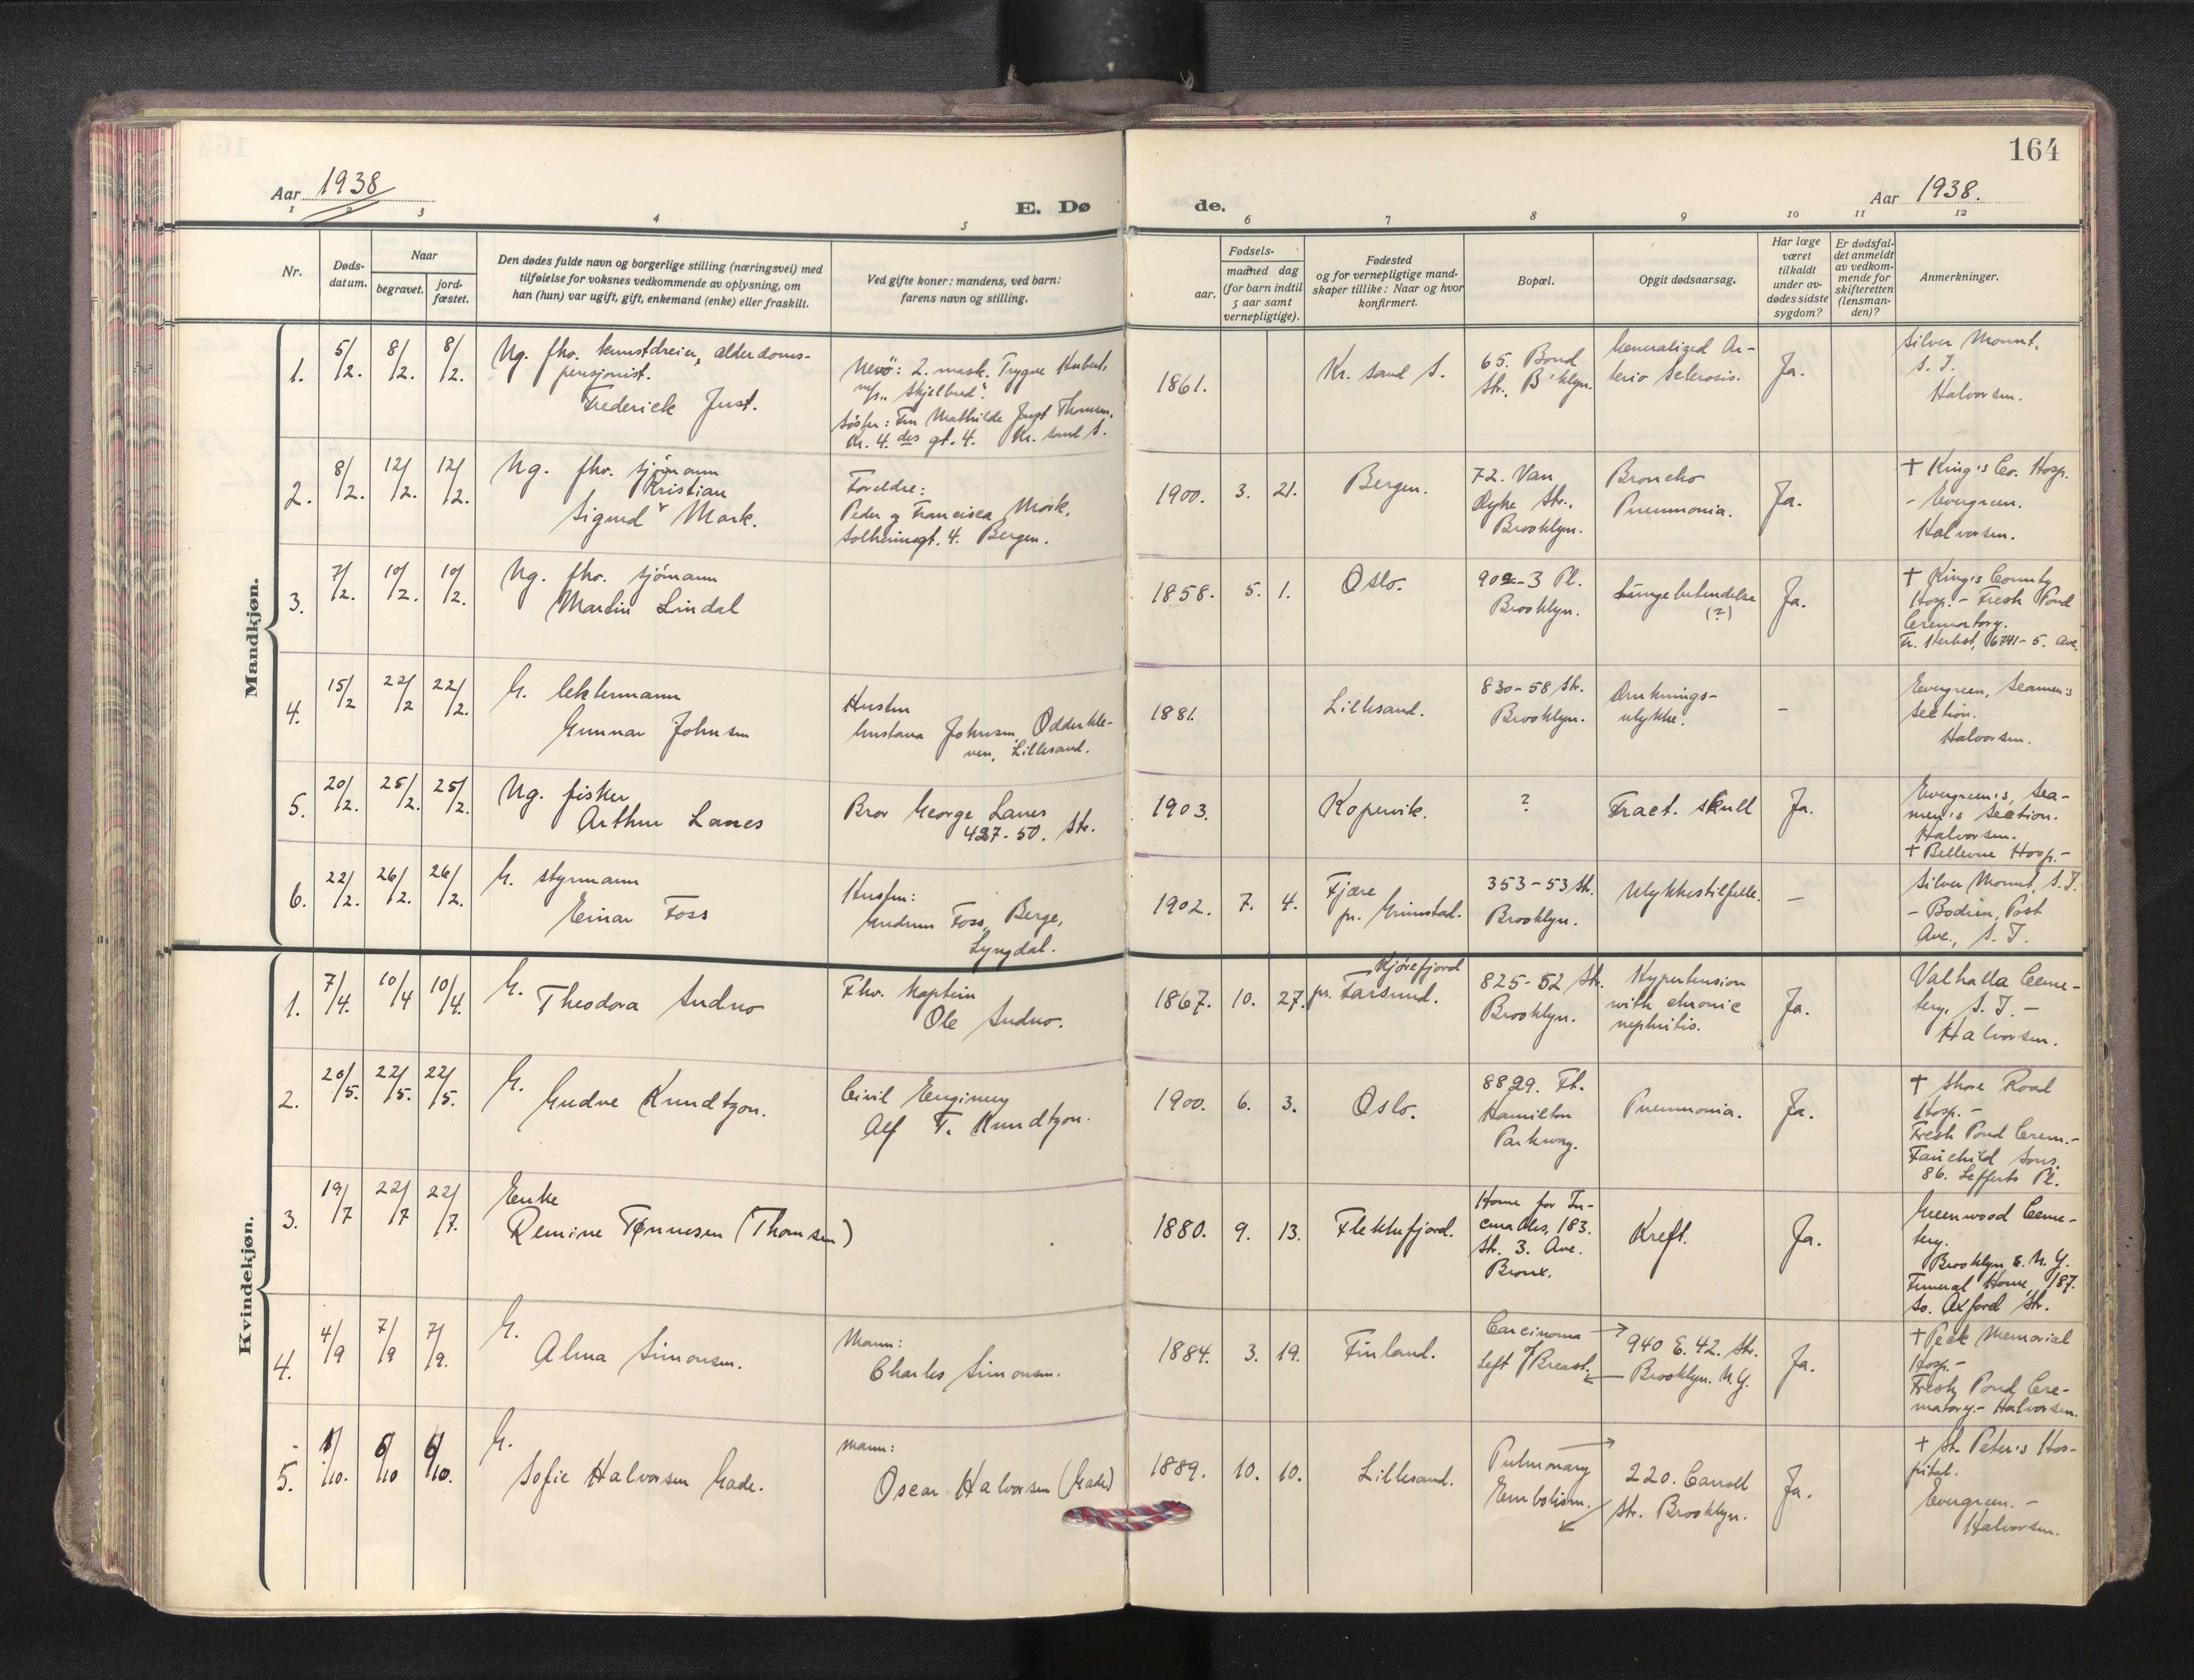 164
Aar 1938
E. Døde.
Aar 1938.
1 2 3 4 5 6 7 8 9 10 11 12
Nr.
Døds-
datum.
Naar
begravet.
jord-
fæstet.
Den dødes fulde navn og borgerlige stilling (næringsvei) med
tilføielse for voksnes vedkommende av oplysning, om
han (hun) var ugift, gift, enkemand (enke) eller fraskilt.
Ved gifte koner: mandens, ved barn:
farens navn og stilling.
Fødsels-
aar.
maaned dag
(for barn indtil
5 aar samt
vernepligtige).
Fødested
og for vernepligtige mand-
skaper tillike: Naar og hvor
konfirmert.
Bopæl.
Opgit dødsaarsag.
Har læge
været
tilkaldt
under av-
dødes sidste
sygdom?
Er dødsfal-
det anmeldt
av vedkom-
mende for
skifteretten
(lensman-
den)?
Anmerkninger.
Mandkjøn.
1. 5/2. 8/2. 8/2.
Ug. fhv. kunstdreier, alderdoms-
pensjonist.
Frederick Just.
Nevø: 2. mask. Trygve Hubert,
m/s. "Skjelbred".
Søster: Fru Mathilde Just Thomsen.
Kr. 4. des gt. 4. Kr. sand S.
1861.
Kr. sand S.
65. Bond
Str. B'klyn.
Generalized Ar-
terio Sclerosis.
Ja.
Silver Mount,
S. I.
Halvorsen.
2. 8/2. 12/2. 12/2.
Ug. fhv. sjømann
Kristian
Sigurd Mørk.
Foreldre:
Peder og Francisca Mørk,
Solheimsgt. 4. Bergen.
1900. 3. 21.
Bergen.
72. Van
Dyke Str.,
Brooklyn.
Broncho
Pneumonia.
Ja.
+ King's Co. Hosp.
- Evergreen.
Halvorsen.
3. 7/2. 10/2. 10/2.
Ug. fhv. sjømann
Martin Lindal
1858. 5. 1.
Oslo.
902-3 Pl.
Brooklyn.
Lungebetendelse
(?)
Ja.
+ King's County
Hosp. - Fresh Pond
Crematory.
Fr. Herbst, 6741-5. Ave.
4. 15/2 22/2 22/2.
G. lektermann
Gunnar Johnsen
Hustru
Gustava Johnsen, Odderkle-
ven, Lillesand.
1881.
Lillesand.
830-58. Str.
Brooklyn.
Druknings-
ulykke.
-
Evergreen, Seamen's
Section.
Halvorsen.
5. 20/2. 25/2. 25/2.
Ug. fisker
Arthur Lanes
Bror George Lanes
427-50. Str.
1903.
Kopervik.
?
Fract. skull
Ja.
Evergreen's, Sea-
men's Section.
Halvorsen.
+ Bellevue Hosp.-
6. 22/2. 26/2. 26/2.
G. styrmann
Einar Foss
Hustru:
Gudrun Foss, Berge,
Lyngdal.
1902. 7. 4.
Fjære
pr. Grimstad.
353-53 Str.
Brooklyn.
Ulykkestilfelle.
-
Silver Mount, S.I.
- Bodien, Post
Ave., S. I.
Kvindekjøn.
1. 7/4. 10/4 10/4.
G.
Theodora Sudno
Fhv. Kaptein
Ole Sudno.
1867. 10. 27.
Kjørefjord
pr. Farsund.
825-52 Str.
Brooklyn.
Hypertension
with chronic
nephritis.
Ja.
Valhalla Ceme-
tery, S. I. -
Halvorsen.
2. 20/5. 22/5. 22/5.
G.
Gudve Knudtzon.
Civil Engineer
Alf T. Knudtzon.
1900. 6. 3.
Oslo.
8829. Ft.
Hamilton
Parkway.
Pneumonia.
Ja.
+ Shore Road
Hosp. -
Fresh Pond Crem.-
Fairchild Sons,
86. Lefferts Pl.
3. 19/7 22/7 22/7.
Enke
Remine Tønnesen (Thomsen)
1880. 9. 13.
Flekkefjord.
Home for In-
curables, 183.
Str. 3. Ave.
Bronx.
Kreft.
Ja.
Greenwood Ceme-
tery.
Brooklyn & N. Y.
Funeral Home, 187.
So. Oxford Str.
4. 4/9 7/9 7/9.
G.
Alma Simonsen.
Mann:
Charles Simonsen.
1884. 3. 19.
Finland.
Carcinoma
Left of Breast.
940 E. 42. Str.
Brooklyn. N.Y.
Ja.
+ Peck Memorial
Hosp.-
Fresh Pond Cre-
matory.- Halvorsen.
5. 1/10. 6/10 6/10.
G.
Sofie Halvorsen Gade.
Mann:
Oscar Halvorsen (Gade)
1889. 10. 10.
Lillesand.
Pulmonary
Embolism.
220. Carroll
Str. Brooklyn.
Ja.
+ St. Peter's Hos-
pital.
Evergreen. -
Halvorsen.